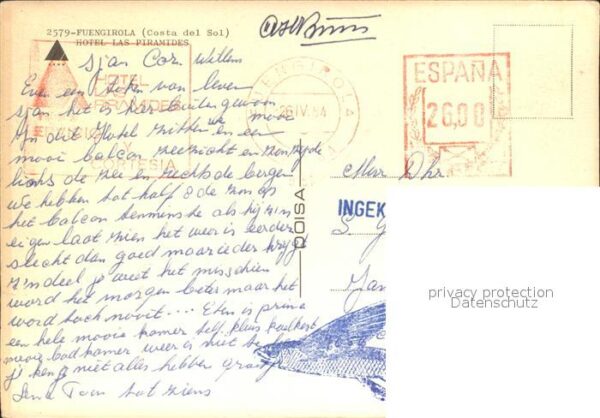 2579-FUENGIROLA (Costa del Sol)
HOTEL LAS PIRAMIDES
Sjan Cor Willem
Even een teken van leven
Sjan het is hier buitengewoon
In dit Hotel zitten we mooi en een
mooi balcon zeezicht en
links de zee en rechts de bergen
we hebben tot half 8 de zon op
het balcon tenminste als hij zin
eigen laat zien het weer is eerder
slecht dan goed maar ieder krijgt
z'n deel je weet het misschien
word het morgen beter maar het
word toch nooit .... Eten is prima
een hele mooie kamer zelf kluis koelkast
mooi badkamer weer is niet
je kan niet alles hebben
Lena Toon tot ziens
HOTEL
LAS
PIRAMIDES
Y
CORTESIA
FUENGIROLA
26 IV. 84
ESPAÑA
26,00
DOISA
Mr Dhr.
INGEK
S. G
privacy protection
Datenschutz